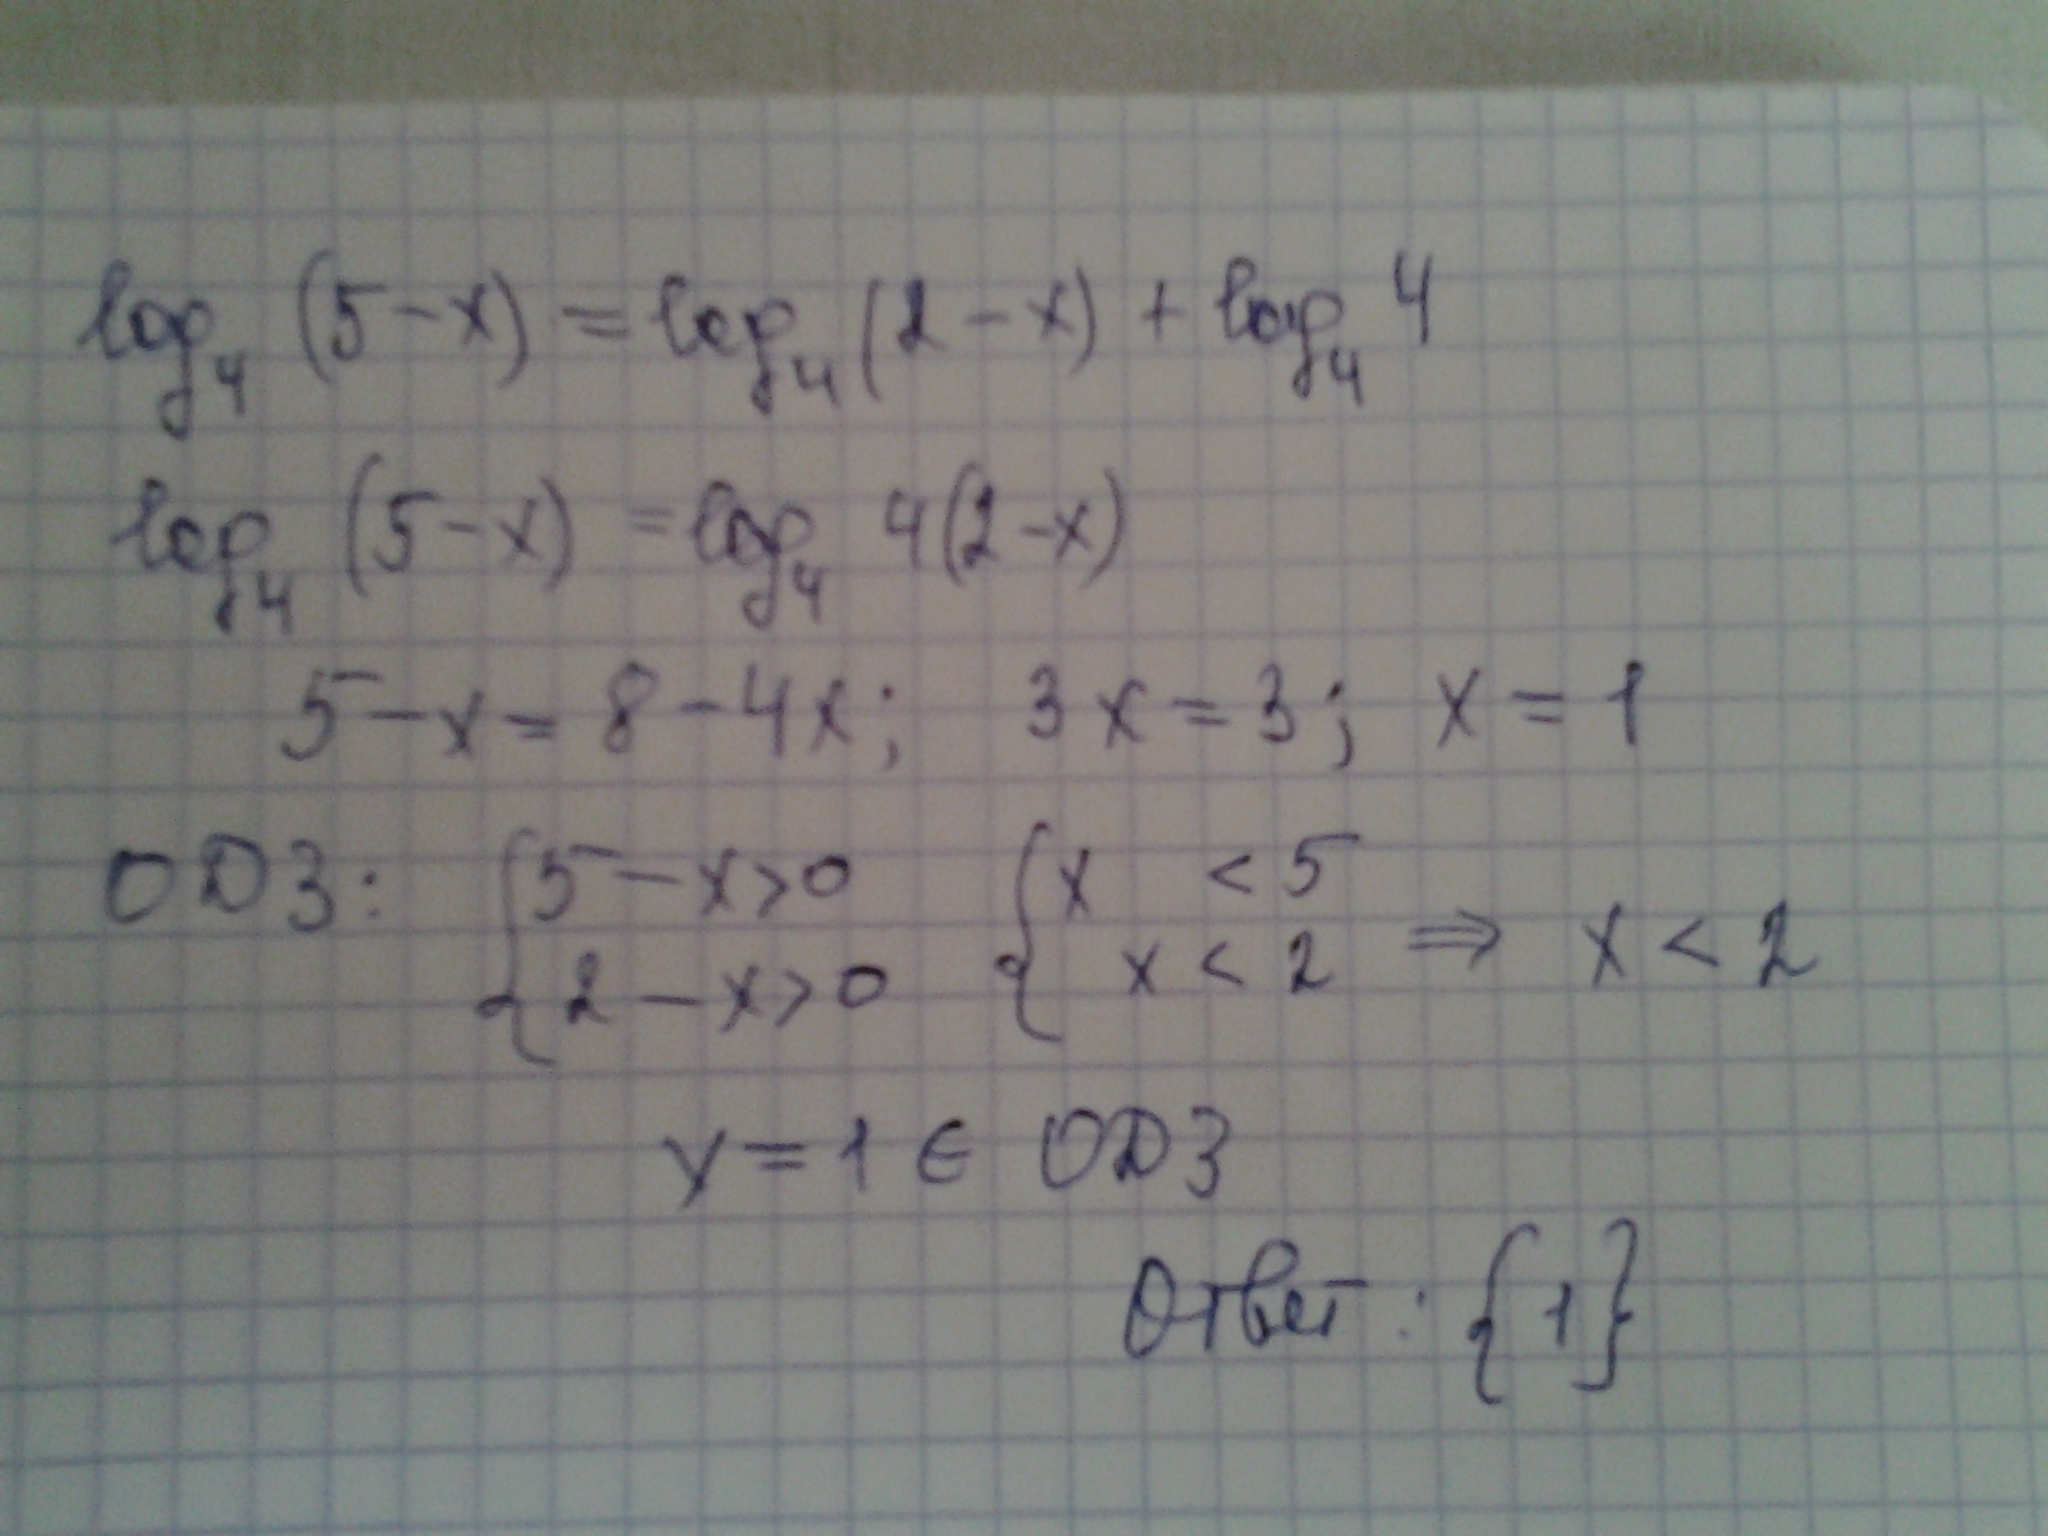 log₄ (5-x) = log₄ (2-x) + log₄ 4
log₄ (5-x) = log₄ 4(2-x)
5-x = 8-4x; 3x = 3; x = 1
ОДЗ: { 5-x>0 { x < 5
{ 2-x>0 { x < 2 ⇒ x < 2
x = 1 ∈ ОДЗ
Ответ: {1}